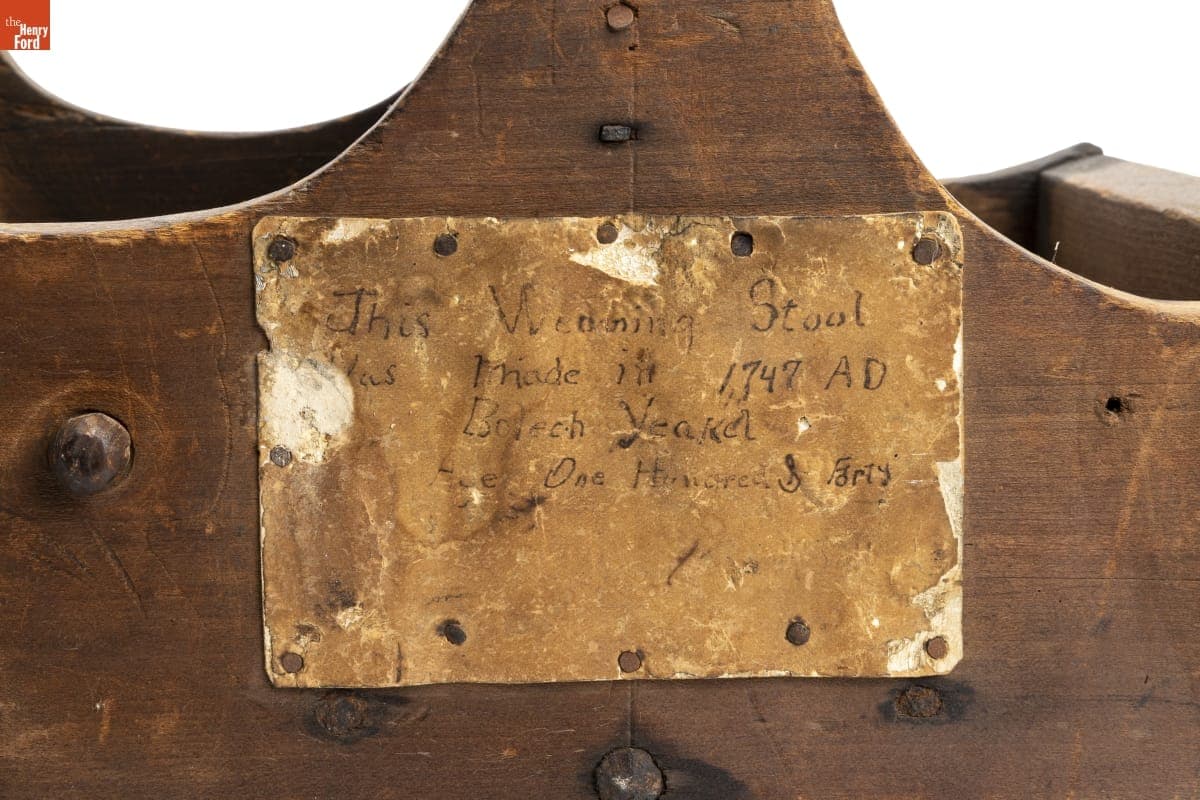 the
Henry
Ford
This Weaving Stool
Was Made in 1,747 AD
Yeakel
Age One Hundred & Forty